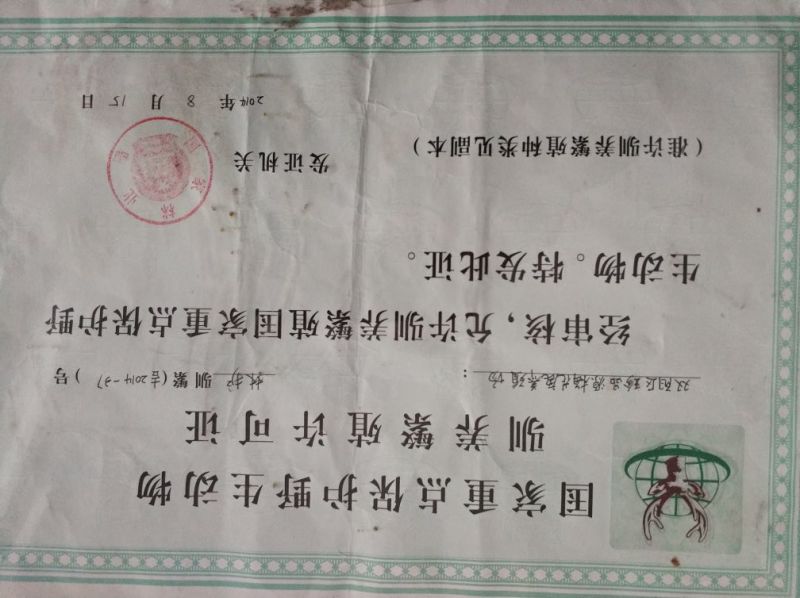 国家重点保护野生动物
驯养繁殖许可证
林护 驯繁(吉2014-37)号
双阳区臻品源梅花鹿养殖场：
经审核，允许驯养繁殖国家重点保护野
生动物。特发此证。
(准许驯养繁殖种类见副本)
发证机关
国家林业
2014年 8 月 15 日